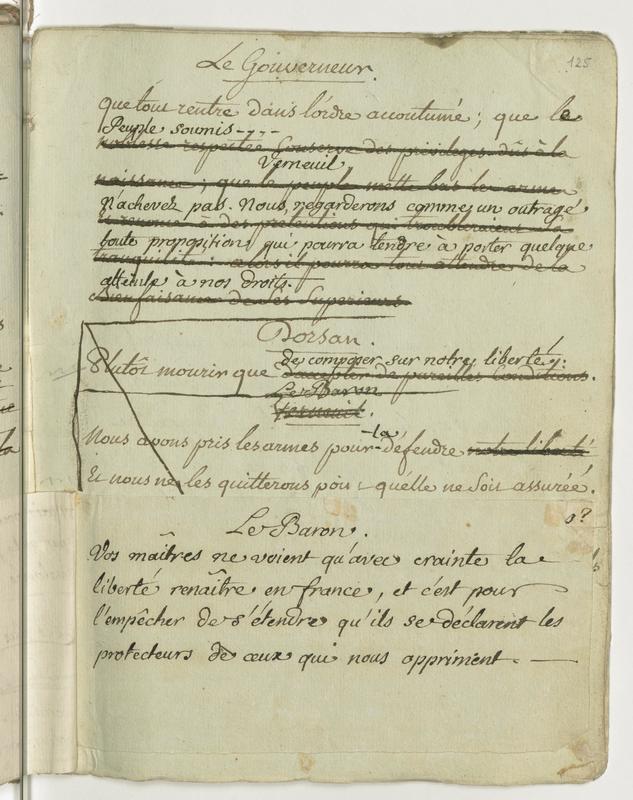 125
Le Gouverneur.
que tout rentre dans l'ordre accoutumé; que le
Peuple soumis----
noblesse respectée conserve des privileges dûs à la
Verneuil
naissance; que le peuple mette bas les armes
N'achevez pas. Nous regarderons comme un outrage
et renonce à des prétentions qui troubleraient la
toute proposition qui pourra tendre à porter quelque
tranquilité: alors il pourra tout attendre de la
atteinte à nos droits.
bienfaisance de ses Superieurs
Dorsan.
de composer sur notre liberté.
Plutôt mourir que d'accepter de pareilles Conditions.
Le Baron
Verneuil.
Nous avons pris les armes pour la défendre notre liberté
Et nous ne les quitterons point qu'elle ne Soit assurée.
s?
Le Baron.
Vos maîtres ne voient qu'avec crainte la
liberté renaître en france, et c'est pour
l'empêcher de s'étendre qu'ils se déclarent les
protecteurs de ceux qui nous oppriment.